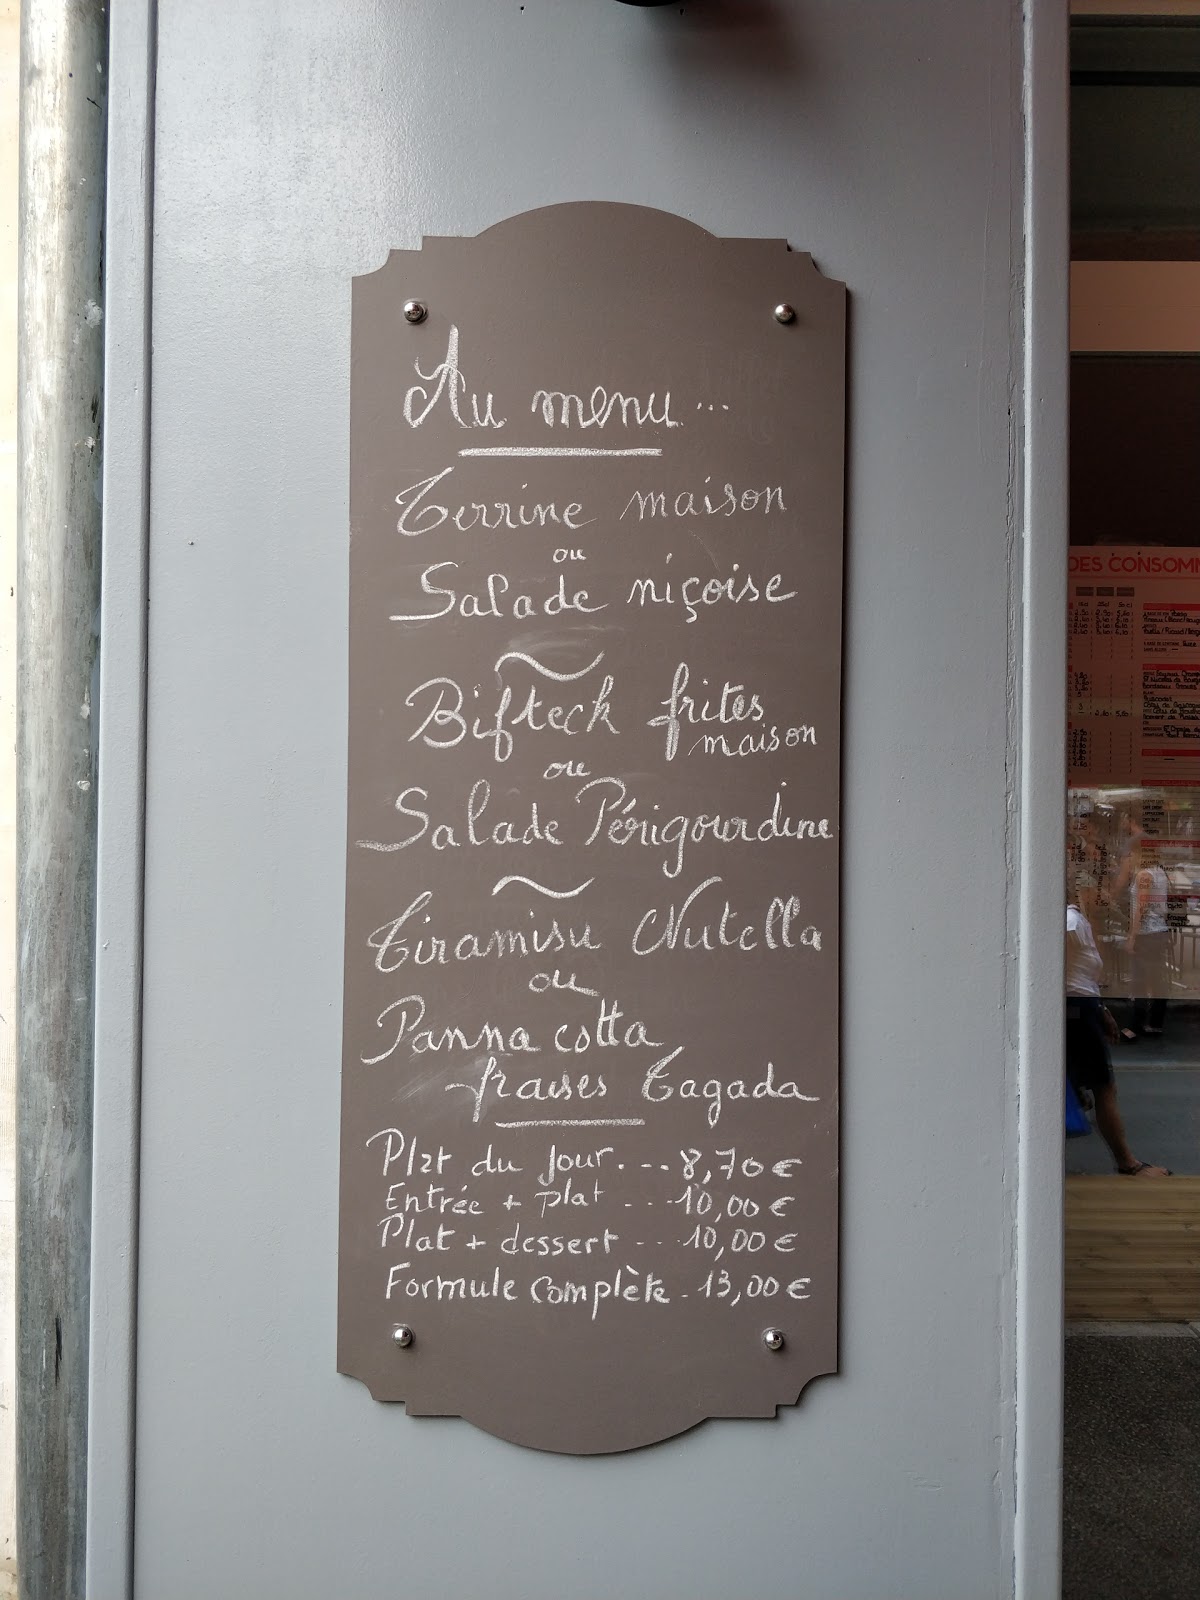 Au menu...
Terrine maison
ou
Salade niçoise
Bifteck frites
maison
ou
Salade Périgourdine
Tiramisu Nutella
ou
Panna cotta
fraises Tagada
Plat du jour. -- 8,70 €
Entrée + plat ... 10,00 €
Plat + dessert ... 10,00 €
Formule complète . 13,00 €
DES CONSOMM